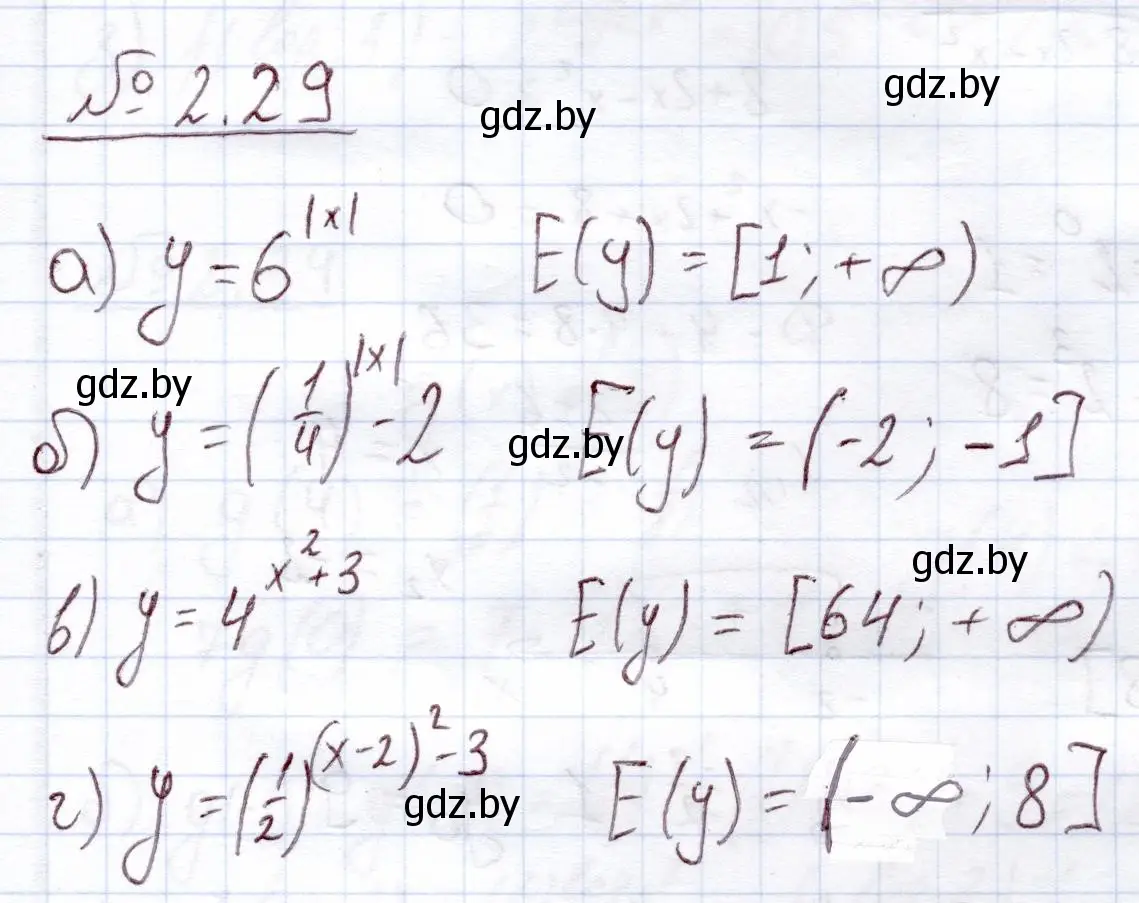 № 2.29
gdz.by
gdz.by
а) y = 6^|x| E(y) = [1; +∞)
gdz.by
б) y = (1/4)^|x| - 2 E(y) = (-2; -1]
gdz.by
gdz.by
в) y = 4^(x²+3) E(y) = [64; +∞)
г) y = (1/2)^((x-2)²-3) E(y) = (-∞; 8]
gdz.by